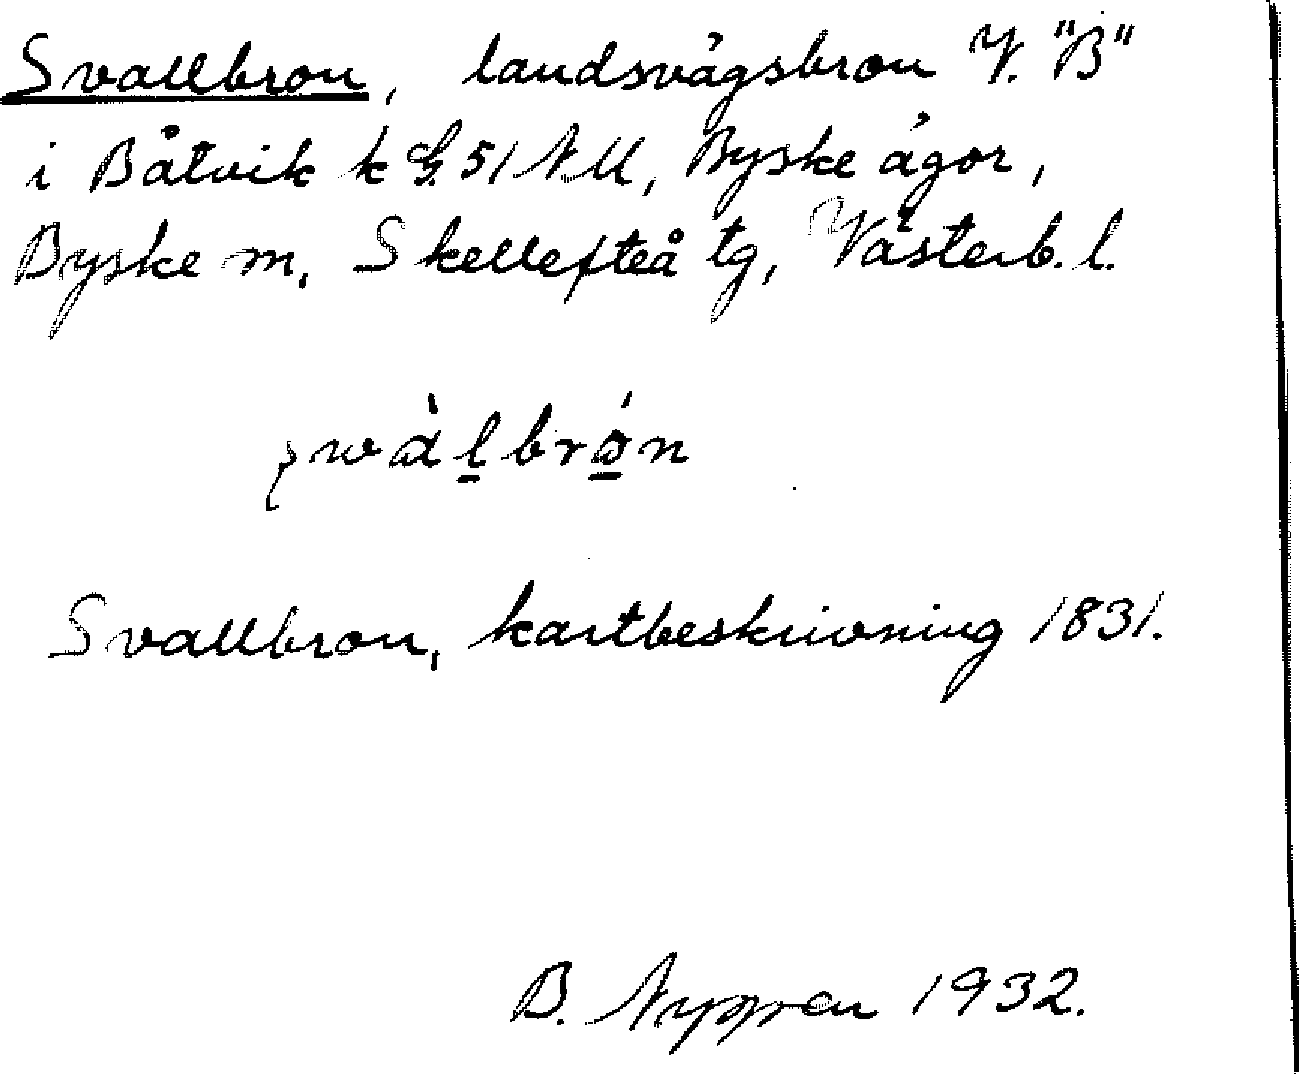 Svallbron, landsvägsbron V. "B"
i Båtvik k G. 51 NU, Byske ägor,
Byske m, Skellefteå tg, Västerb. l.
swàlbrón
Svallbron, kartbeskrivning 1831.
B. Nygren 1932.